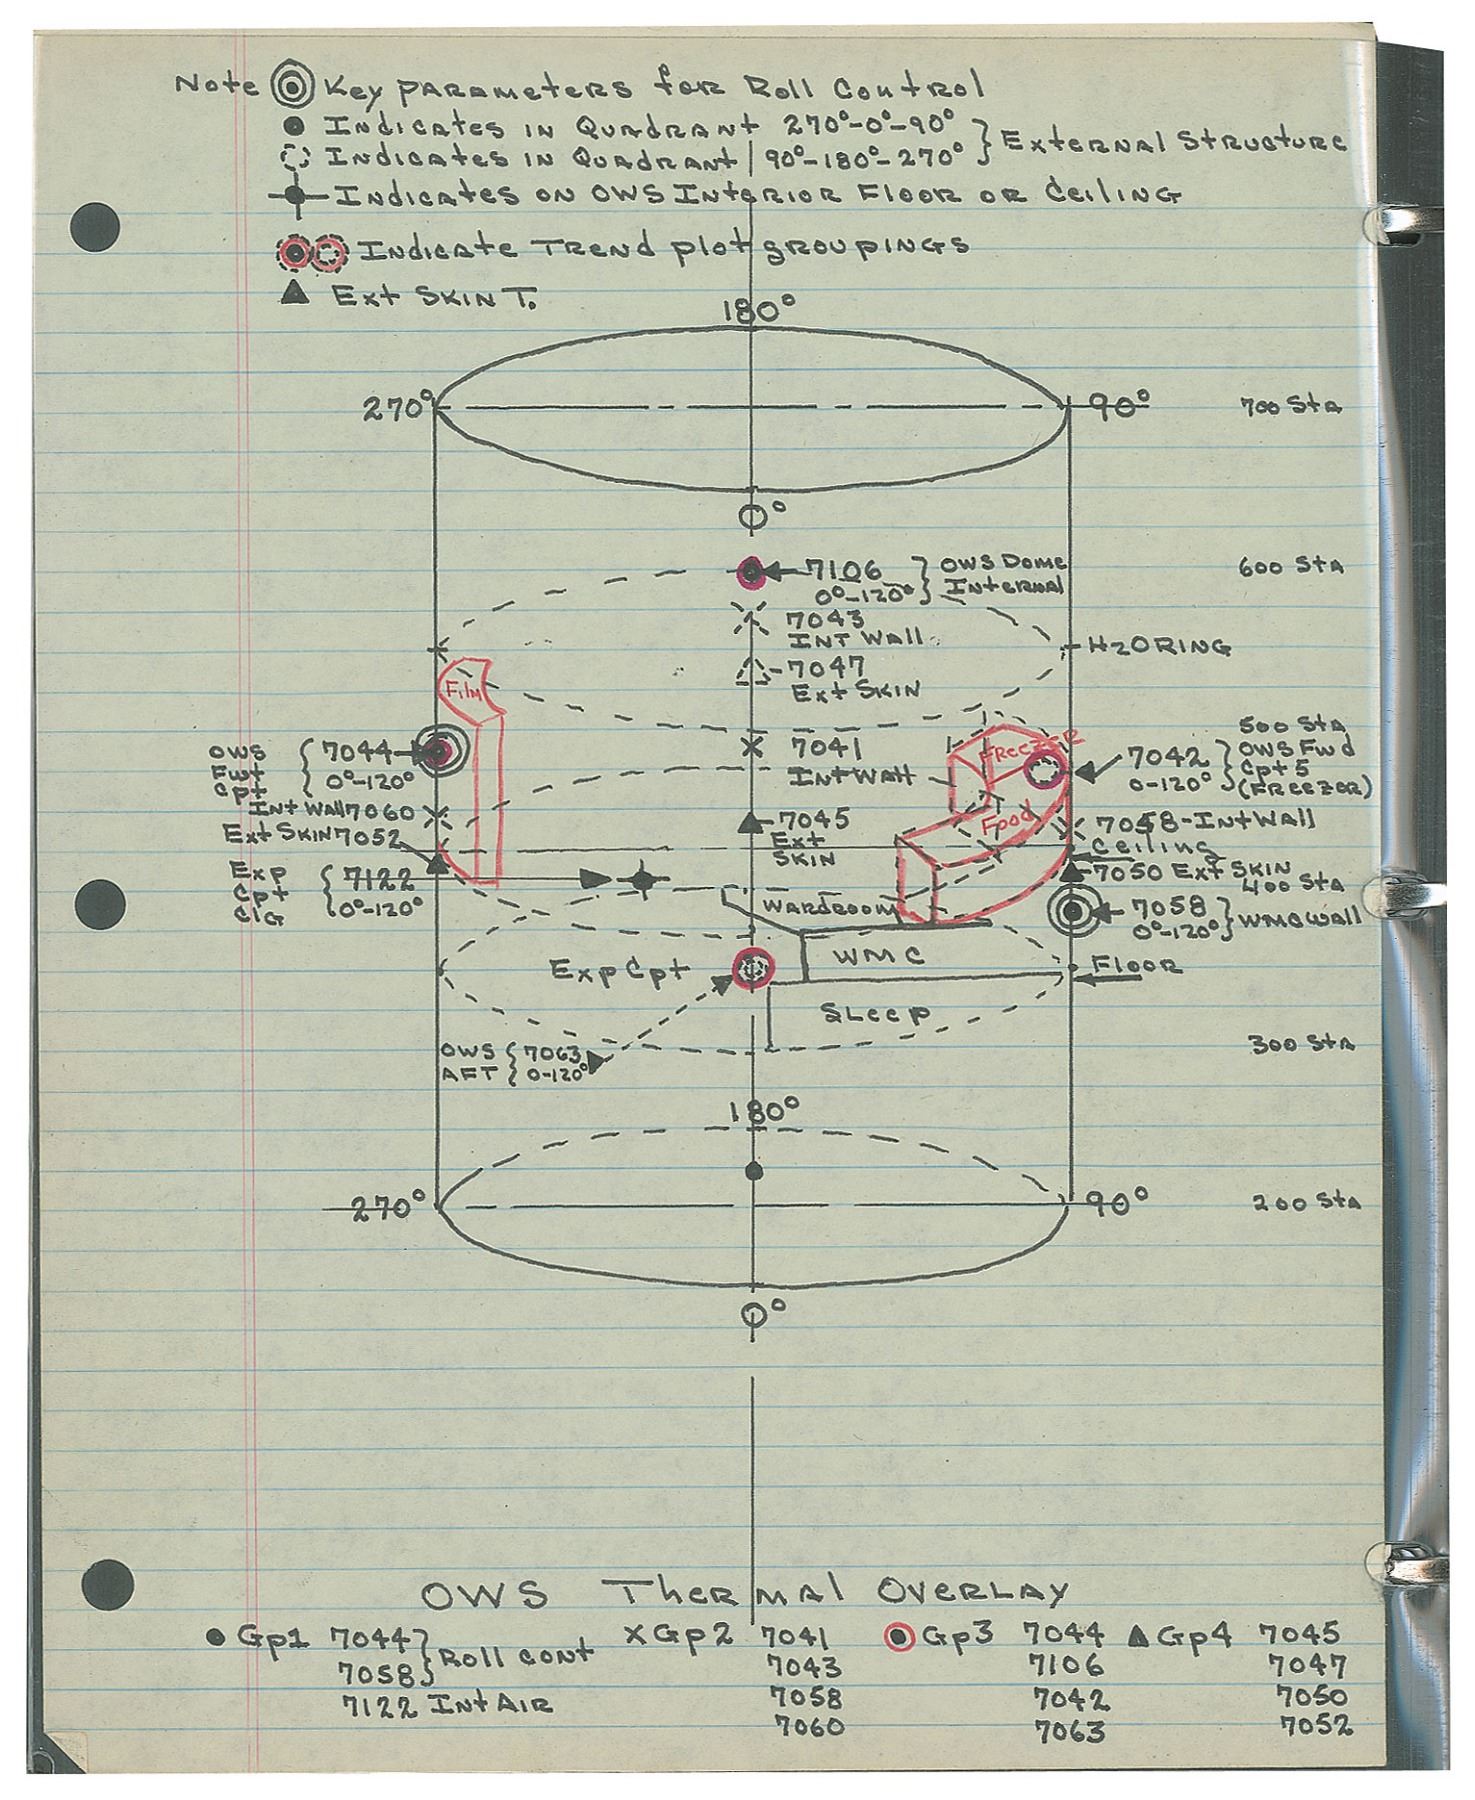 Note Key Parameters for Roll Control
Indicates in Quadrant 270°-0°-90°
Indicates in Quadrant 90°-180°-270° } External Structure
Indicates on OWS Interior Floor or Ceiling
Indicate Trend plot groupings
Ext Skin T.
180°
270° 90° 700 Sta
0°
7106 } OWS Dome 600 Sta
0°-120° Internal
7043
Int Wall
H2O Ring
7047
Ext Skin
Film
500 Sta
OWS { 7044 7041 Freezer 7042 } OWS Fwd
Fwt 0°-120° Int Wall 0-120° Cpt 5
Cpt (Freezer)
Int Wall 7060 7045 Food 7058-Int Wall
Ext Skin 7052 Ext Ceiling
Skin
Exp { 7122 7050 Ext Skin
Cpt 0°-120° 400 Sta
Clg Wardroom 7058 } WMC Wall
0°-120°
WMC
Exp Cpt Floor
Sleep
OWS { 7063 300 Sta
AFT 0-120°
180°
270° 90° 200 Sta
0°
OWS Thermal Overlay
Gp1 7044 } Roll cont X Gp2 7041 Gp3 7044 Gp4 7045
7058 7043 7106 7047
7122 Int Air 7058 7042 7050
7060 7063 7052